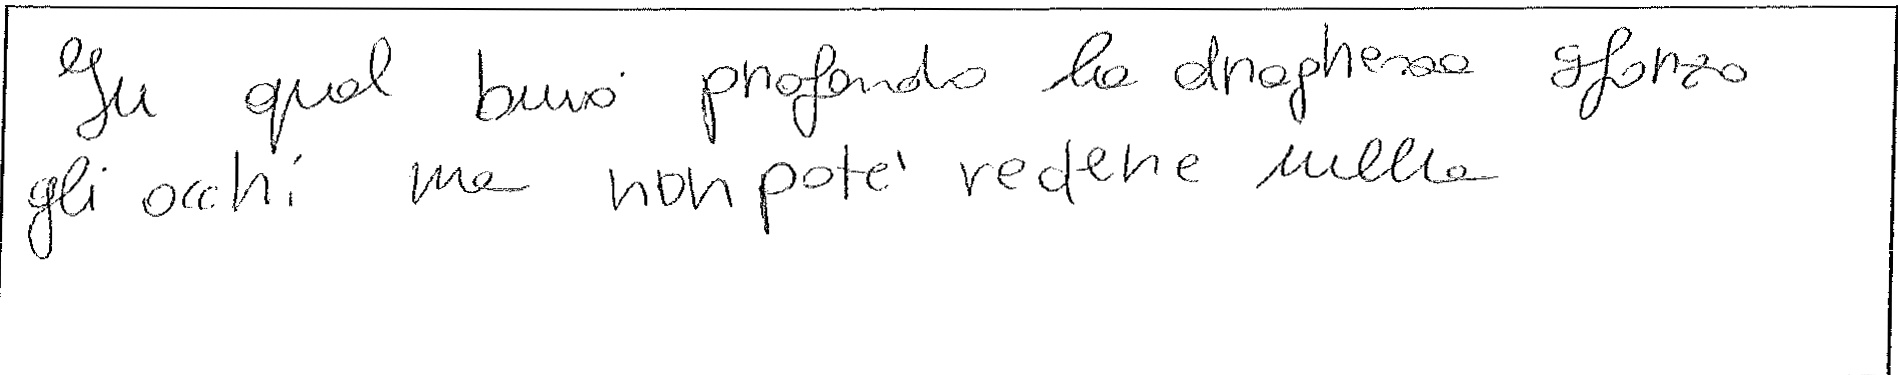 In qual buio profondo la draghessa sforzo
gli occhi ma non pote' vedere nulla